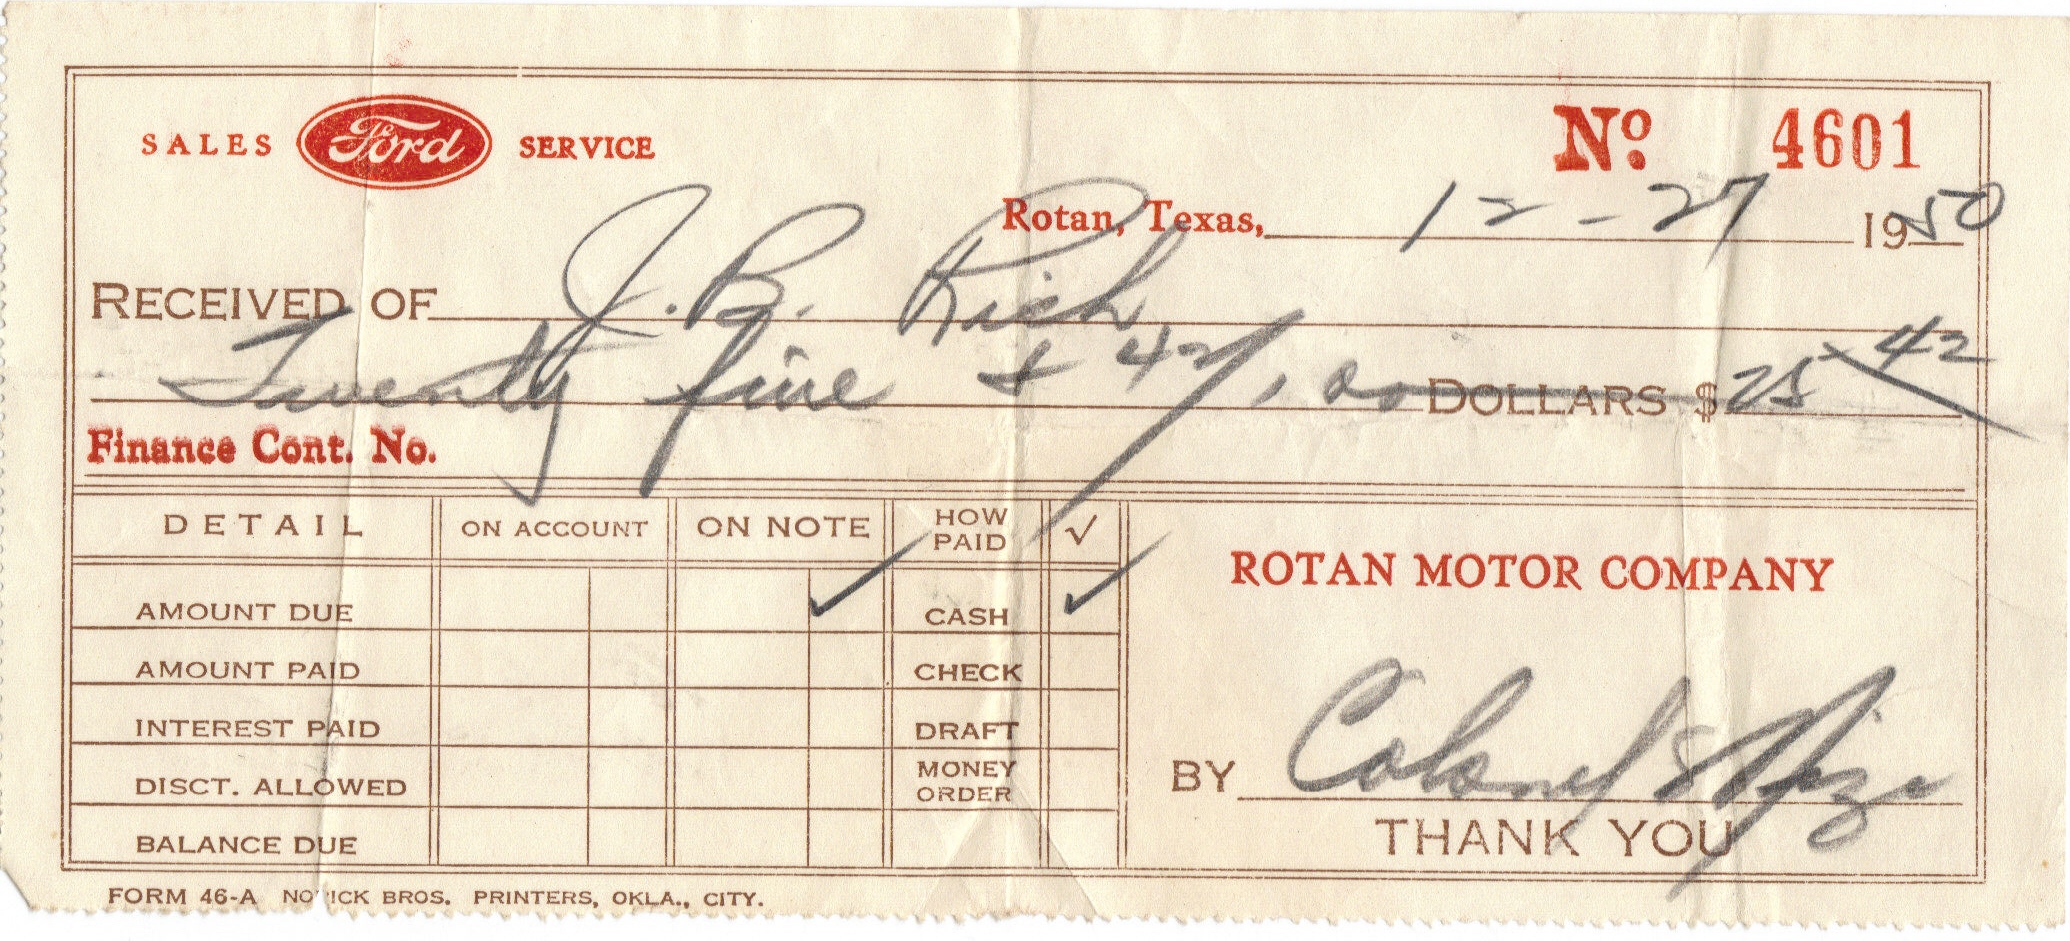 SALES Ford SERVICE
Nº 4601
Rotan, Texas, 12-27 1950
RECEIVED OF J. B. Rich
Twenty five & 42/00 DOLLARS $ 25 42
Finance Cont. No.
DETAIL ON ACCOUNT ON NOTE HOW PAID ✓
AMOUNT DUE ✓ CASH ✓
AMOUNT PAID CHECK
INTEREST PAID DRAFT
DISCT. ALLOWED MONEY ORDER
BALANCE DUE
ROTAN MOTOR COMPANY
BY Colonel
THANK YOU
FORM 46-A NOVICK BROS. PRINTERS, OKLA., CITY.